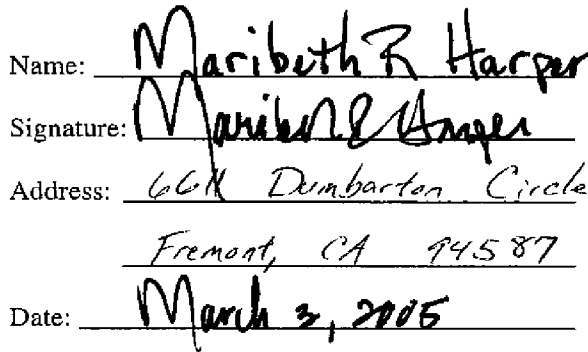 Name: Maribeth R Harper
Signature: Maribeth R Harper
Address: 6611 Dumbarton Circle
Fremont, CA 94587
Date: March 3, 2005